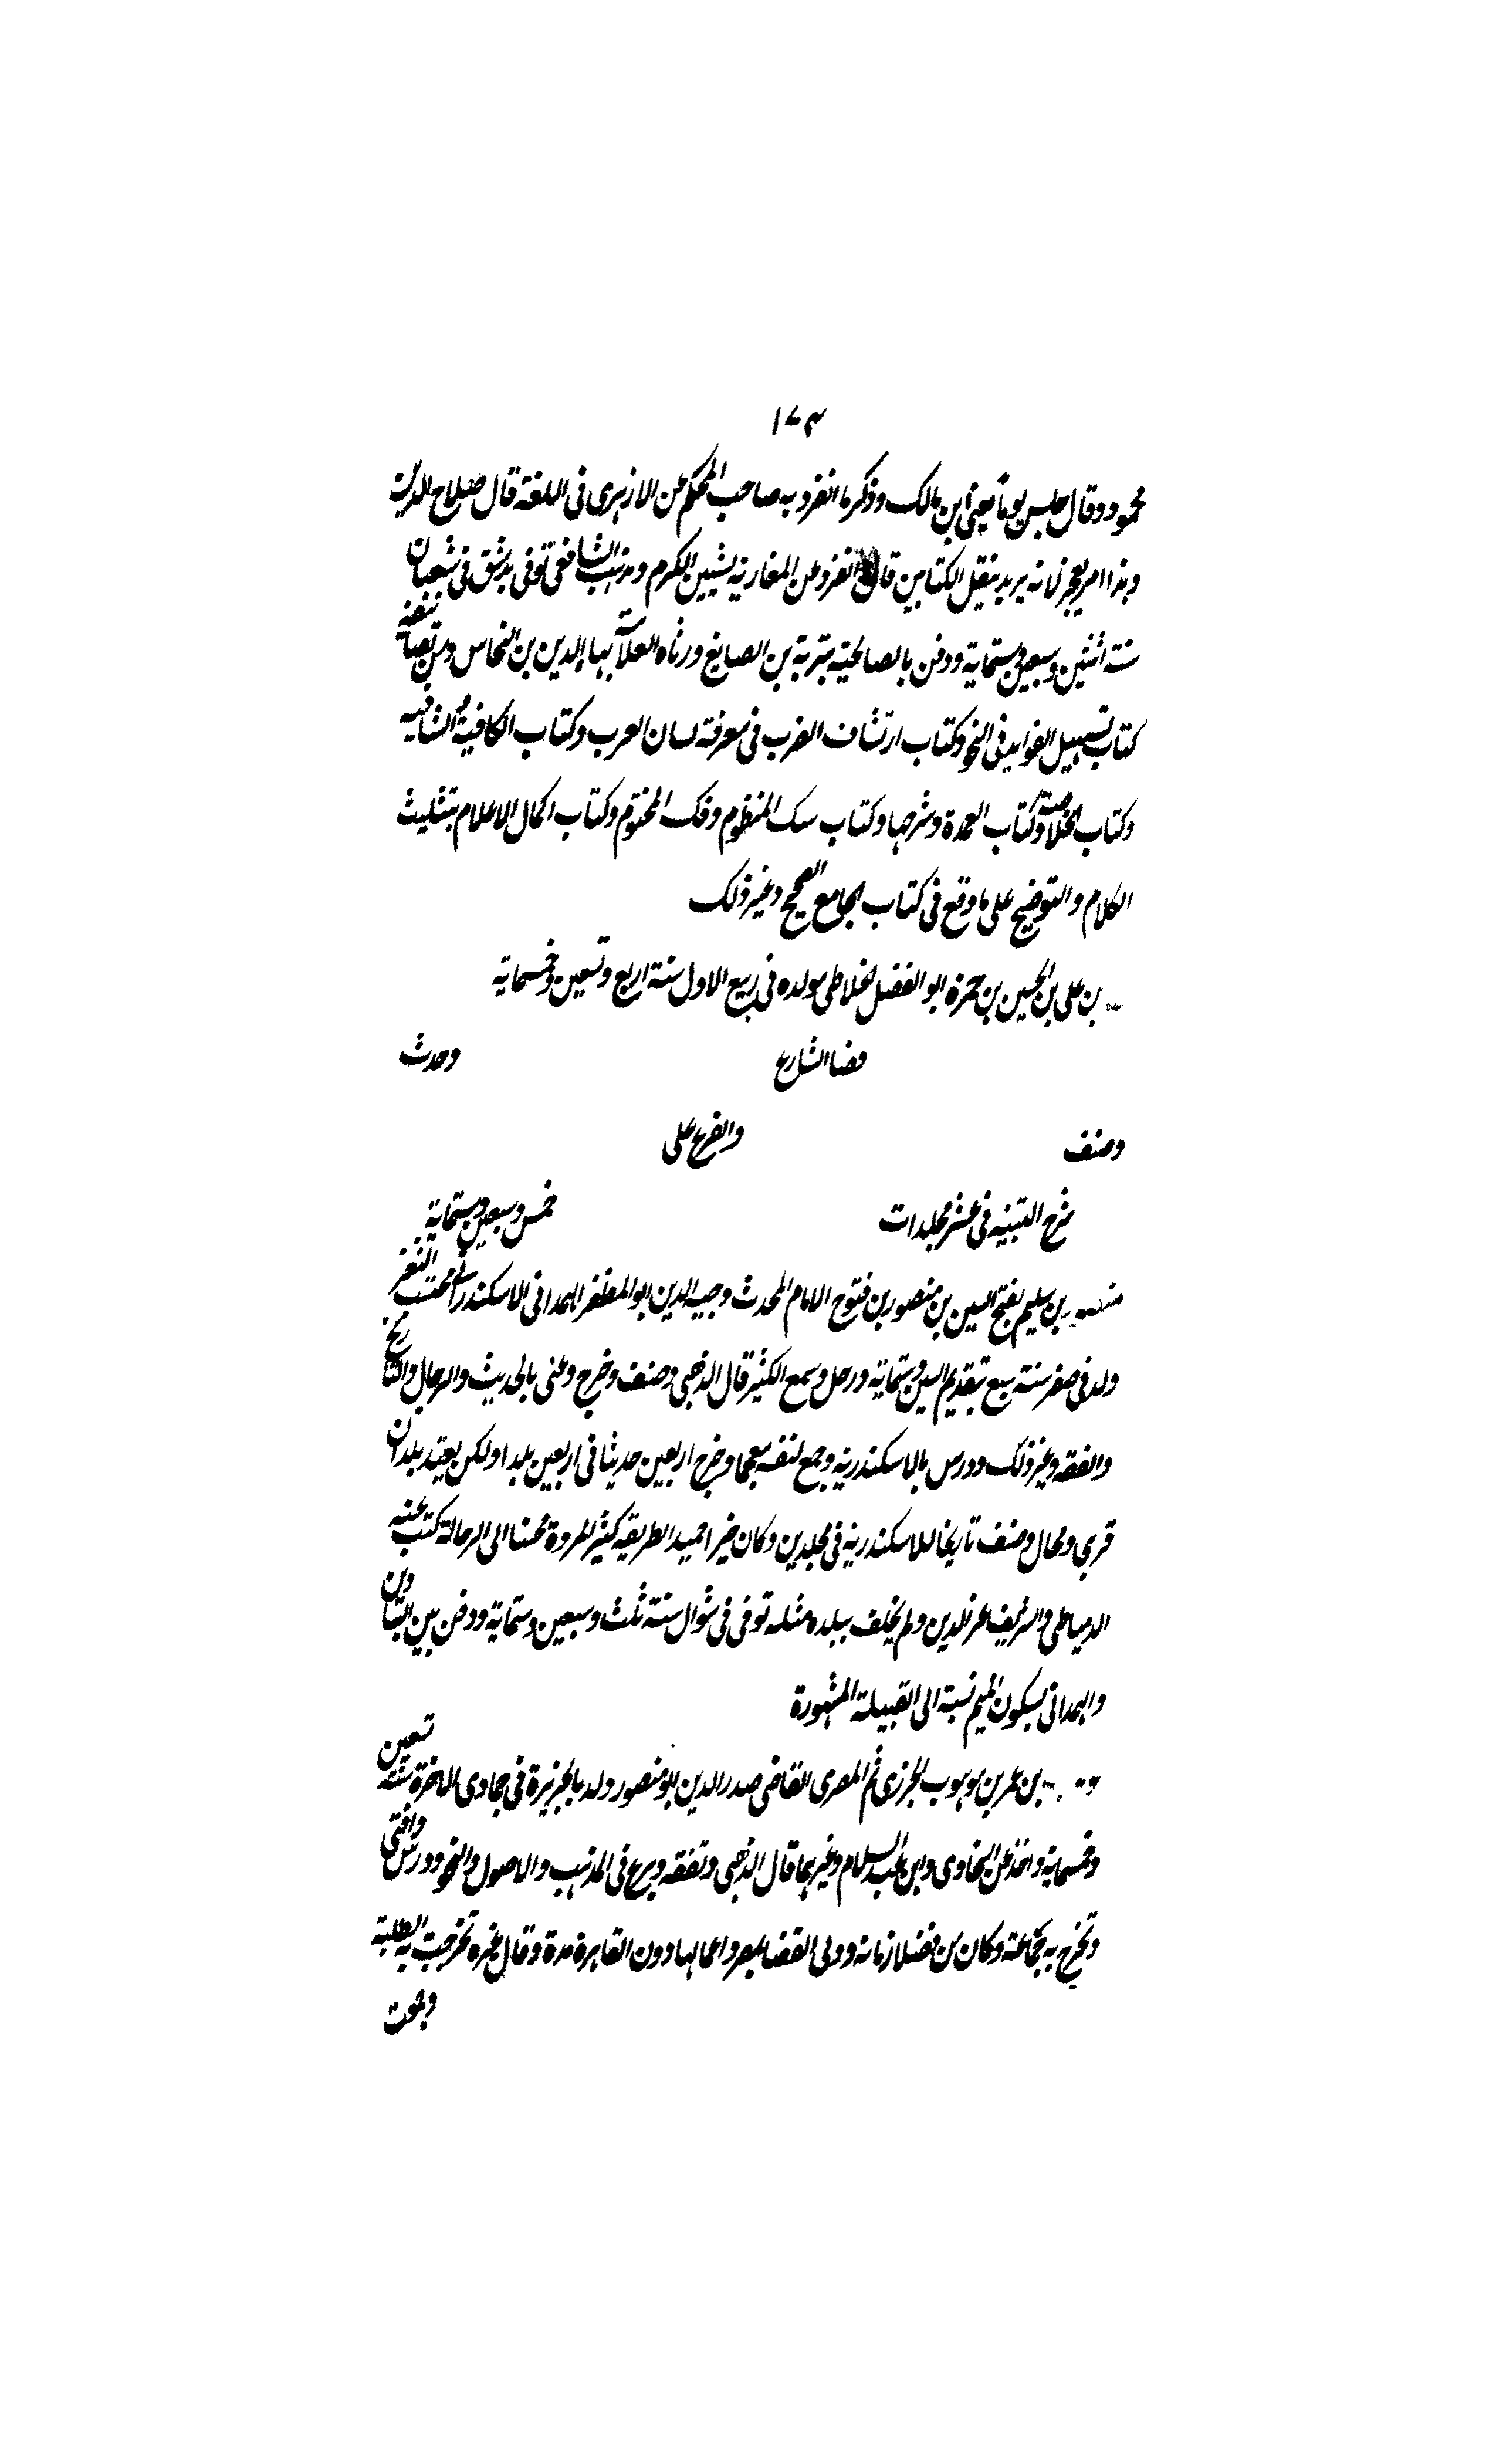 ١٧٣
محمود وقال جلس يوما يعني ابن مالك وذكر ما انفرد به صاحب المحكم عن الازهرى فى اللغة قال صلاح الدين
وهذا امر يعجز لانه يريد ينقل الكتابين قال انفرد عن المغاربة بشيئين الكرم ومذهب الشافعى توفى بدمشق فى شعبان
سنة اثنتين وسبعين وستماية ودفن بالصالحية بتربة بن الصايغ ورثاه العلامة بهاء الدين بن النحاس ومن تصانيفه
كتاب تسهيل الفوايد فى النحو وكتاب ارتشاف الضرب فى معرفة لسان العرب وكتاب الكافية الشافيه
وكتاب الخلاصة وكتاب العمدة وشرحها وكتاب سبك المنظوم وفك المختوم وكتاب اكمال الاعلام بتثليث
الكلام والتوضيح على ما وقع فى كتاب الجامع الصحيح وغير ذلك
بن على بن الحسين بن حمزة ابو الفضل الخلاطى مولده فى ربيع الاول سنة اربع وتسعين وخمسماية
قضا الشارع وحدث
وصنف والفرع على
شرح التنبيه فى عشر مجلدات خمس وسبعين وستماية
منصور بن سليم بفتح السين بن منصور بن فتوح الامام المحدث وجيه الدين ابو المظفر الهمدانى الاسكندرانى محتسب الثغر
ولد فى صفر سنة سبع بتقديم السين وستماية ورحل وسمع الكثير قال الذهبى وصنف وخرج وعنى بالحديث والرجال والتاريخ
والفقه وغير ذلك ودرس بالاسكندرية وجمع لنفسه معجما وخرج اربعين حديثا فى اربعين بلدا ولكن بعيد بلدان
قرى ومحال وصنف تاريخا للاسكندرية فى مجلدين وكان خيرا حميد الطريقه كثير المروة محسنا الى الرحالة كتب عنه
الدمياطى والشريف عز الدين ولم يخلف ببلده مثله توفى فى شوال سنة ثلث وسبعين وستماية ودفن بين
والهمدانى بسكون الميم نسبة الى القبيلة المشهورة
بن عمر بن موهوب الجزرى ثم المصرى القاضى صدر الدين ابو منصور ولد بالجزيرة فى جمادى الاخرة سنة تسعين
وخمسماية واخذ عن السخاوى وابن عبد السلام وغيرهما قال الذهبى وتفقه وبرع فى المذهب والاصول والنحو ودرس وافتى
وتخرج به جماعة وكان من فضلا زمانه وولى القضا بمصر واعمالها دون القاهرة مدة وقال غيره تخرجت به الطلبة
وجمعت